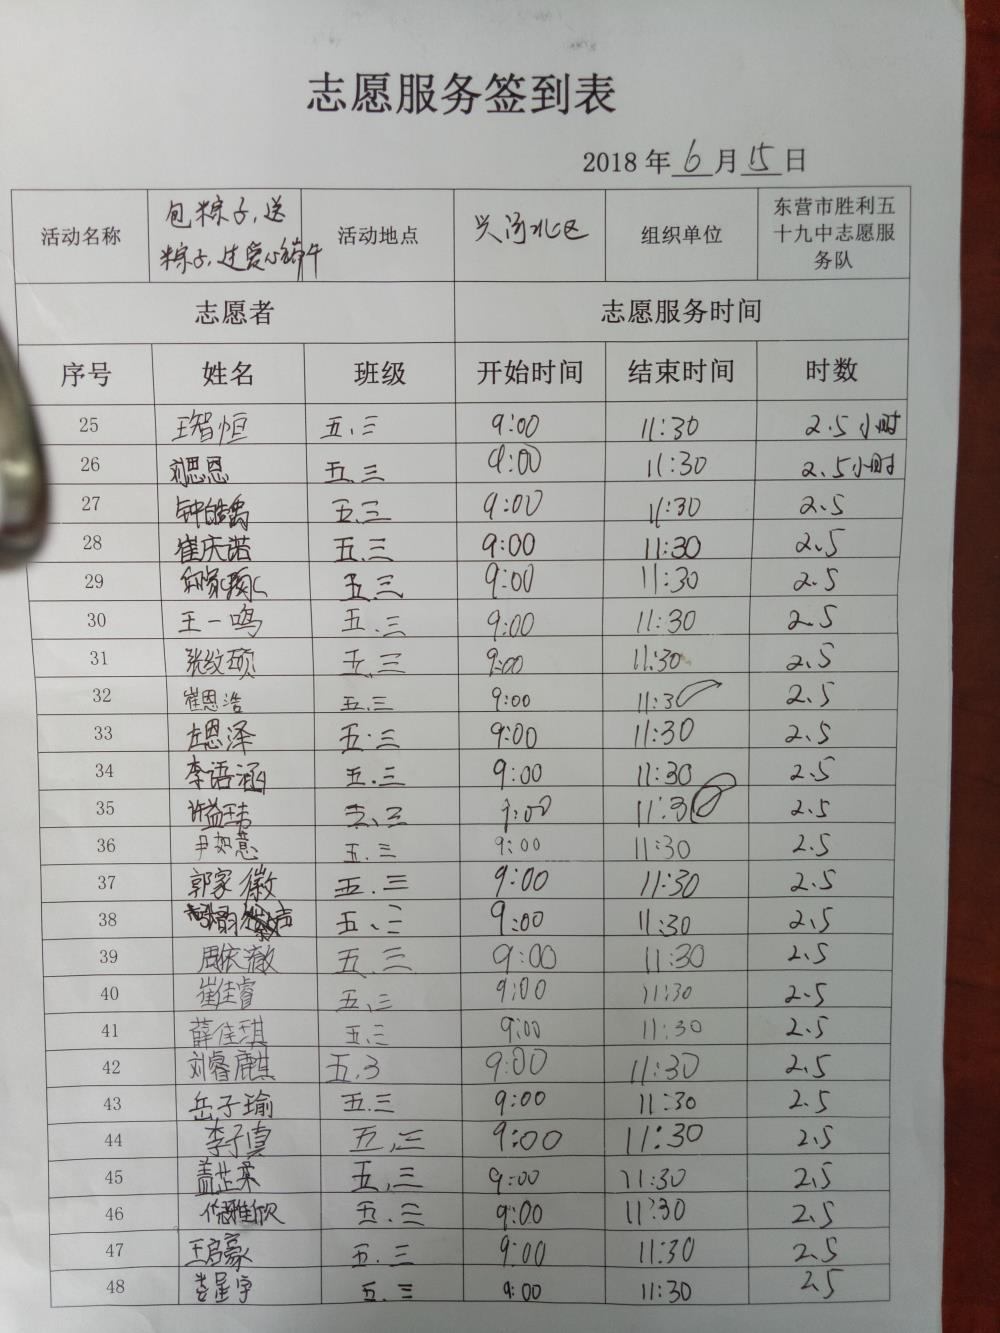 志愿服务签到表
2018 年 6 月 15 日
活动名称 包粽子,送粽子,过爱心端午 活动地点 兴河北区 组织单位 东营市胜利五十九中志愿服务队
志愿者 志愿服务时间
序号 姓名 班级 开始时间 结束时间 时数
25 王智恒 五.三 9:00 11:30 2.5小时
26 刘思恩 五.三 9:00 11:30 2.5小时
27 钟皓禹 五.三 9:00 11:30 2.5
28 崔庆诺 五.三 9:00 11:30 2.5
29 五.三 9:00 11:30 2.5
30 王一鸣 五.三 9:00 11:30 2.5
31 张纹硕 五.三 9:00 11:30 2.5
32 崔恩浩 五.三 9:00 11:30 2.5
33 左恩泽 五.三 9:00 11:30 2.5
34 李语涵 五.三 9:00 11:30 2.5
35 许益玮 五.三 9:00 11:30 2.5
36 尹如意 五.三 9:00 11:30 2.5
37 郭家徽 五.三 9:00 11:30 2.5
38 五.三 9:00 11:30 2.5
39 周依澈 五.三 9:00 11:30 2.5
40 崔佳睿 五.三 9:00 11:30 2.5
41 薛佳琪 五.三 9:00 11:30 2.5
42 刘睿麒 五.3 9:00 11:30 2.5
43 岳子瑜 五.三 9:00 11:30 2.5
44 李子真 五.三 9:00 11:30 2.5
45 盖芷柔 五.三 9:00 11:30 2.5
46 修雅欣 五.三 9:00 11:30 2.5
47 王启豪 五.三 9:00 11:30 2.5
48 娄星宇 五.三 9:00 11:30 2.5